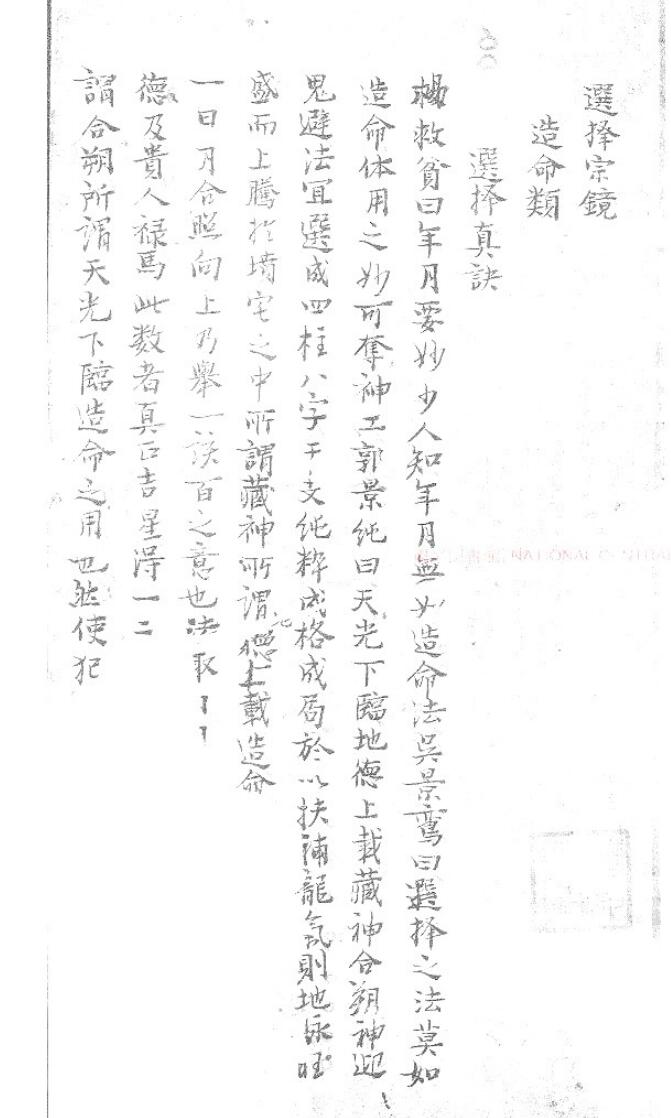 選择宗鏡
造命類
選择真訣
楊救貧曰年月要妙少人知年月無如造命法吴景鸾曰選择之法莫如
造命体用之妙可奪神工郭景纯曰天光下臨地德上载藏神合朔神迎
鬼避法宜選成四柱八字干支纯粹成格成局於以扶補龍氣則地脉旺
盛而上騰於墳宅之中所謂藏神所謂地德上載造命
一日月合照向上乃舉一該百之意也法取
德及貴人禄馬此数者真正吉星得一二
謂合朔所謂天光下臨造命之用也然使犯
NATIONAL CENTRAL